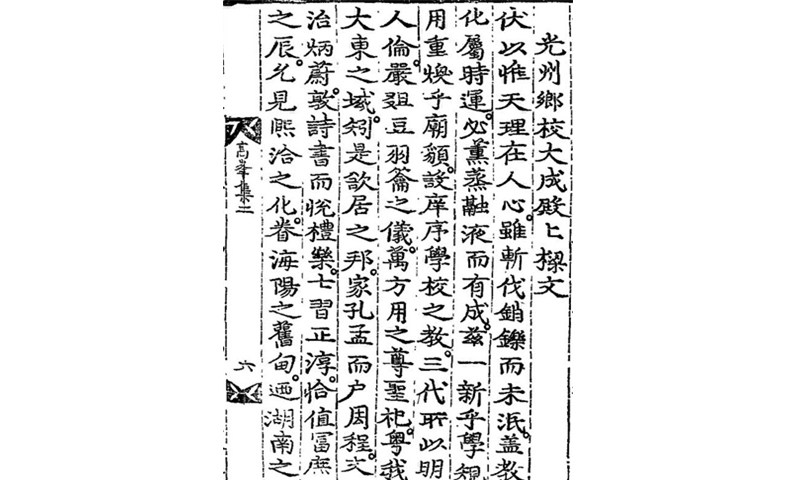 光州鄉校大成殿上樑文
伏以惟天理在人心。雖斬伐銷鑠而未泯。盖教
化屬時運。必薰蒸融液而有成。玆一新乎學規
用重煥乎廟貌。設庠序學校之教。三代所以明
人倫。嚴俎豆羽籥之儀。萬方用之尊聖祀。粤我
大東之域。矧是欲居之邦。家孔孟而户周程。文
治炳蔚。敦詩書而悅禮樂。士習正淳。恰値冨庶
之辰。允見熙洽之化。眷海陽之舊甸。廼湖南之
高峯集二
六